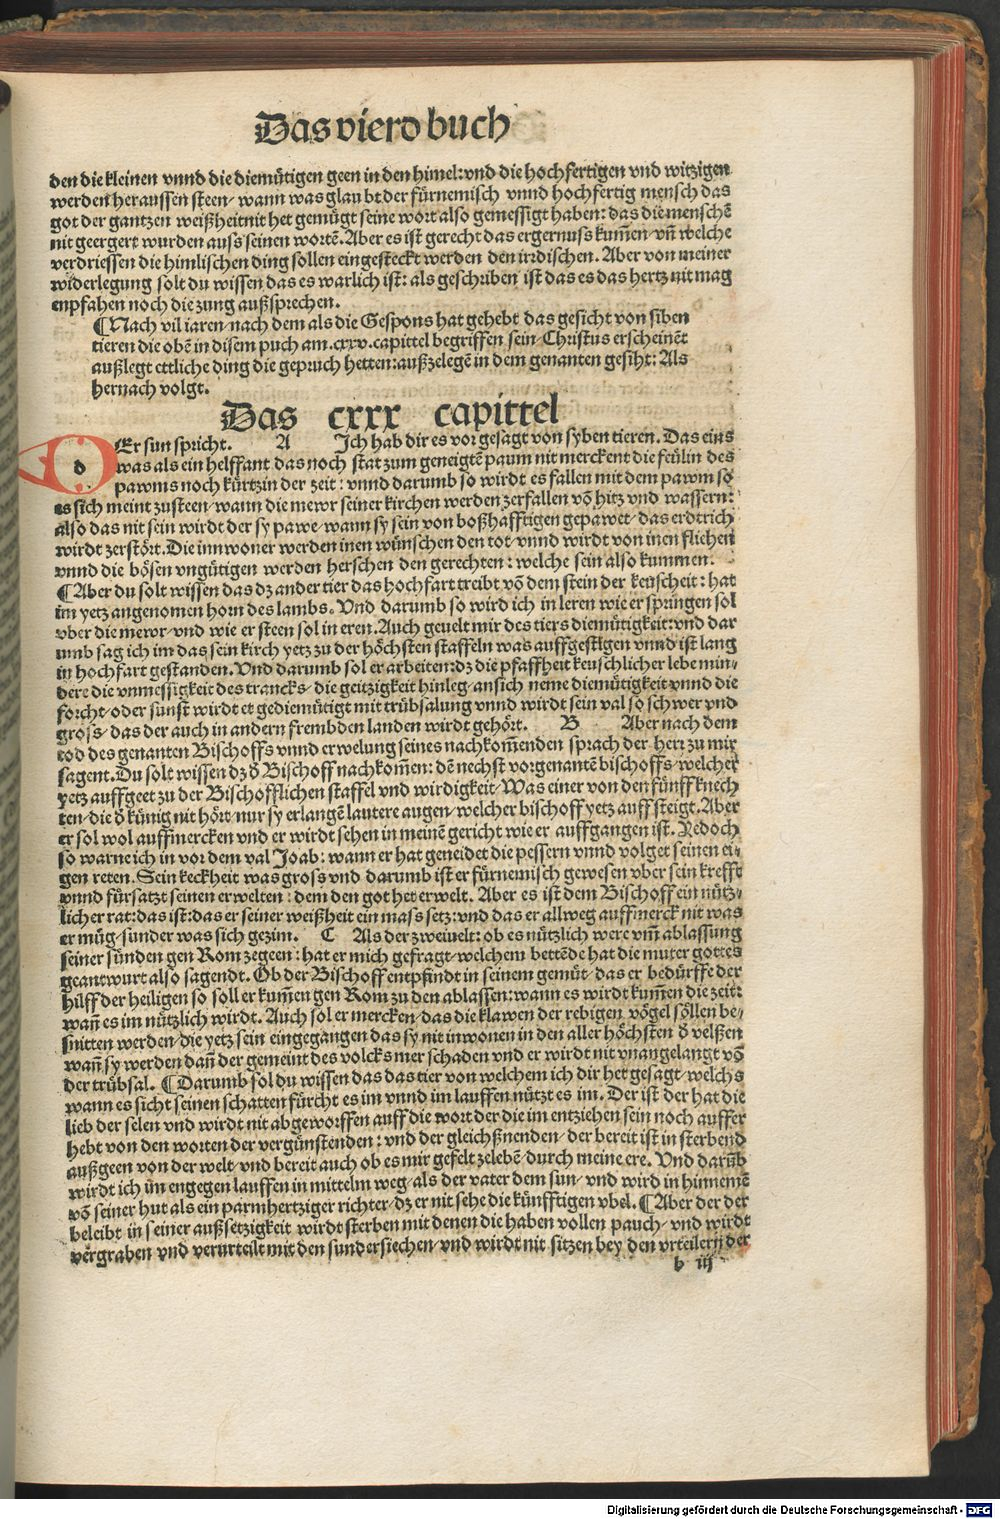 Das vierd buch
den die kleinen vnnd die diemütigen geen in den himel: vnd die hochfertigen vnd witzigen
werden heraussen steen/ wann was glaubt der fürnemisch vnnd hochfertig mensch das
got der gantzen weißheit nit het gemügt seine wort also gemessigt haben: das die menschē
nit geergert wurden auss seinen wortē. Aber es ist gerecht das ergernuss kum̄en/ vn̄ welche
verdriessen die himlischen ding sollen eingesteckt werden den irrdischen. Aber von meiner
widerlegung solt du wissen das es warlich ist: als geschriben ist das es das hertz nit mag
enpfahen noch die zung außsprechen.
¶ Nach vil iaren/ nach dem als die Gespons hat gehebt das gesicht von siben
tieren die obē in disem puch am .cxxv. capittel begriffen sein/ Christus erscheinēt
außlegt ettliche ding die gepruch hetten: außzelegē in dem genanten gesiht: Als
hernach volgt.
Das cxxx capittel
d Er sun spricht. A Ich hab dir es vor gesagt von syben tieren. Das eins
was als ein helffant das noch stat zum geneigtē paum nit merckent die feülin des
pawms noch kürtzin der zeit: vnnd darumb so wirdt es fallen mit dem pawm so
es sich meint zusteen/ wann die mewr seiner kirchen werden zerfallen vō hitz vnd wassern:
also das nit sein wirdt der sy pawe/ wann sy sein von boßhafftigen gepawet/ das erdtrich
wirdt zerstört. Die innwoner werden inen wünschen den tot/ vnnd wirdt von inen fliehen
vnnd die bösen vngütigen werden herschen den gerechten: welche sein also kummen.
¶ Aber du solt wissen das dz ander tier das hochfart treibt vō dem stein der keüscheit: hat
im yetz angenomen horn des lambs. Vnd darumb so wird ich in leren wie er springen sol
vber die mewr/ vnd wie er steen sol in eren. Auch geuelt mir des tiers diemütigkeit: vnd dar
umb sag ich im das sein kirch yetz zu der höchsten staffeln was auffgestigen vnnd ist lang
in hochfart gestanden. Vnd darumb sol er arbeiten: dz die pfaffheit keuschlicher lebe min-
dere die vnmessigkeit des trancks/ die geitzigkeit hinleg/ an sich neme diemütigkeit vnnd die
forcht/ oder sunst wirdt et gediemütigt mit trübsalung vnnd wirdt sein val so schwer vnd
gross/ das der auch in andern frembden landen wirdt gehört. B Aber nach dem
tod des genanten Bischoffs vnnd erwelung seines nachkom̄enden sprach der herr zu mir
sagent. Du solt wissen dz d̄ Bischoff nachkom̄en: dē nechst vorgenantē bischoffs/ welcher
yetz auffgeet zu der Bischofflichen staffel vnd wirdigkeit/ Was einer von den fünff knech
ten/ die d̄ künig nit hört/ nur sy erlangē lautere augen/ welcher bischoff yetz auffsteigt. Aber
er sol wol auffmercken vnd er wirdt sehen in meinē gericht wie er auffgangen ist. Jedoch
so warne ich in vor dem val Joab: wann er hat geneidet die pessern vnnd volget seinen ei-
gen reten. Sein keckheit was gross vnd darumb ist er fürnemisch gewesen vber sein krefft
vnnd fürsatzt seinen erwelten: dem den got het erwelt. Aber es ist dem Bischoff ein nütz-
licher rat: das ist: das er seiner weißheit ein mass setz: vnd das er allweg auffmerck nit was
er müg/ sunder was sich gezim. C Als der zweiuelt: ob es nützlich were vm̄ ablassung
seiner sünden gen Rom zegeen: hat er mich gefragt/ welchem bettēde hat die muter gottes
geantwurt also sagendt. Ob der Bischoff entpfindt in seinem gemüt/ das er bedürffe der
hilff der heiligen so soll er kum̄en gen Rom zu den ablassen: wann es wirdt kum̄en die zeit:
wan̄ es im nützlich wirdt. Auch sol er mercken/ das die klawen der rebigen vögel söllen be-
snitten werden/ die yetz sein eingegangen das sy nit inwonen in den aller höchsten d̄ velßen
wan̄ sy werden dan̄ der gemeint des volcks mer schaden vnd er wirdt nit vnangelangt vō
der trübsal. ¶ Darumb sol du wissen das das tier von welchem ich dir het gesagt/ welchs
wann es sicht seinen schatten fürcht es im vnnd im lauffen nützt es im. Der ist der hat die
lieb der selen vnd wirdt nit abgeworffen auff die wort der die im entziehen sein noch auffer
hebt von den worten der vergünstenden: vnd der gleichßnenden/ der bereit ist in sterbend
außgeen von der welt/ vnd bereit auch ob es mir gefelt zelebē/ durch meine ere. Vnd darūb
wirdt ich im engegen lauffen in mittelm weg/ als der vater dem sun/ vnd wird in hinnemē
vō seiner hut als ein parmhertziger richter/ dz er nit sehe die künfftigen vbel. ¶ Aber der der
beleibt in seiner außsetzigkeit wirdt sterben mit denen die haben vollen pauch/ vnd wirdt
vergraben vnd verurteilt mit den sundersiechen/ vnd wirdt nit sitzen bey den vrteilern der
b iij
Digitalisierung gefördert durch die Deutsche Forschungsgemeinschaft - DFG